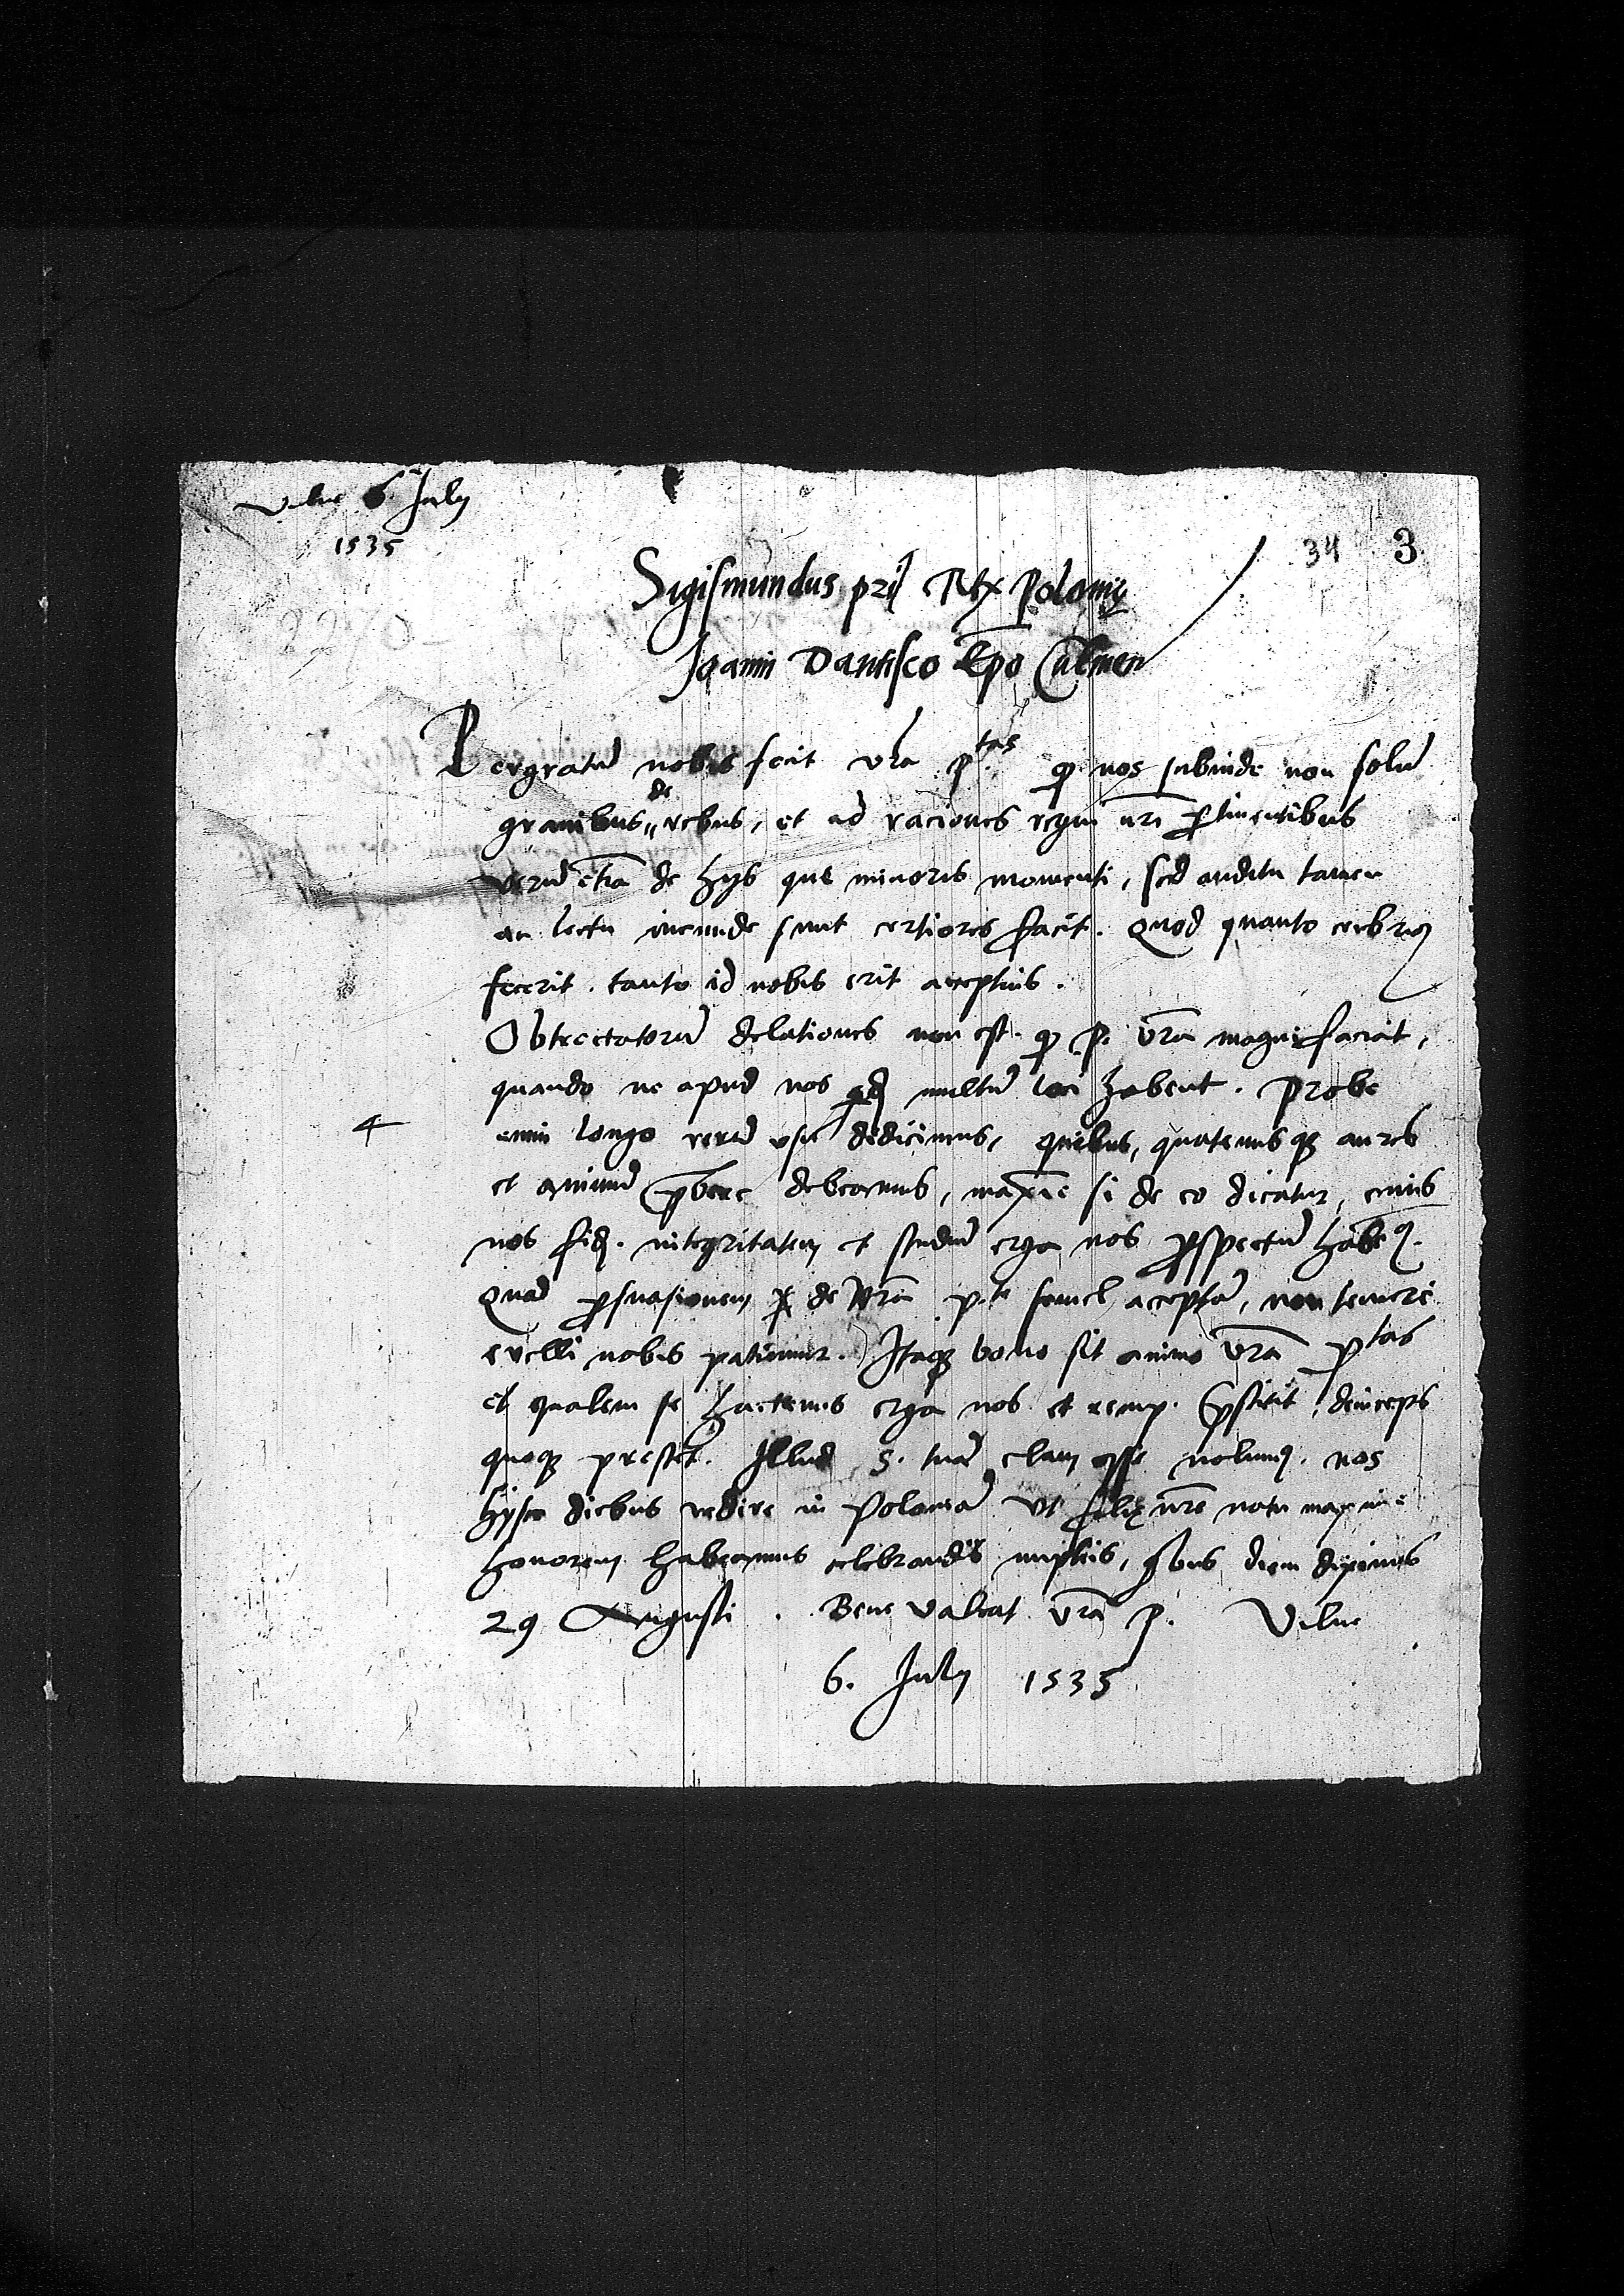 Vilne 6 July
1535
34 3
Sigismundus pri Rex Polonię
Joanni Dantisco Epo Culmen
Pergratū nobis fecit vrā p.tas q nos subinde non solū
de
gravibus rebus, et ad raciones regni nri pertinentibus
verū etiā de hys que minoris momenti, sed auditu tamen
an lectu iucunde sunt certiores facit. Quod quanto crebrius
fecerit. tanto id nobis erit acceptius.
Obtrectatorū delationes non est. q p. vrā magni faciat,
quando ne apud nos qd multū loci habent. Probe
4
enim longo rerū usu didicimus, quibus, quatenusq aures
et animū prebere debeamus, maxīe si de eo dicatur, cuius
nos fid. integritatem et studiū erga nos perspectū habem9.
Quā persuasionem de Vrā p.te semel acceptā, non temere
evelli nobis patiemur. Itaq bono sit animo vrā p.tas
et qualem se hactenus erga nos et remp. prestitit, deinceps
quoq prestet. Illud S. tuā clam esse nolumus. nos
hysce diebus redire in Poloniā Vt filię nrē natu maxime
honorem habeamus celebrandis nuptiis, quibus diem diximus
29 Augusti. Bene valeat vrā p. Vilne
6. July 1535